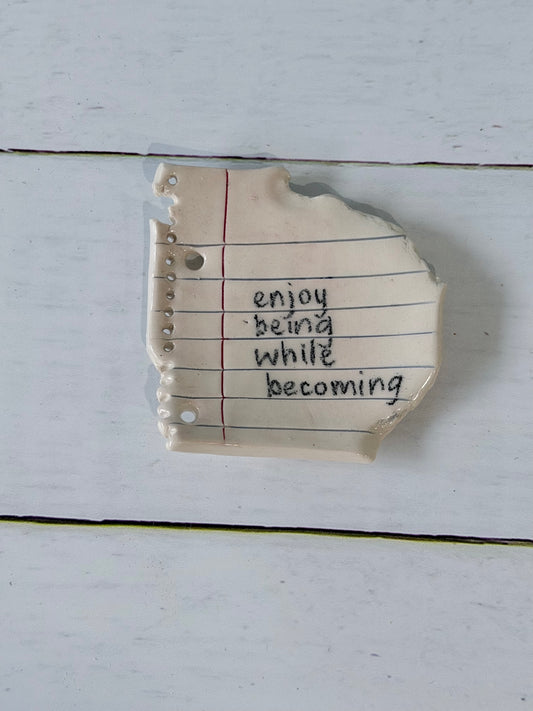 enjoy
being
while
becoming